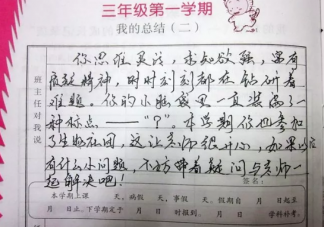 三年级第一学期
我的总结（二）
班主任对我说
你思维灵活，求知欲强，富有
质疑精神，时时刻刻都在钻研着
难题。你的小脑袋里一直装满了一
种标点——“？”。本学期你也参加
了生物社团，这让老师很开心，如果以后
有什么小问题，不妨带着疑问与老师一
起解决吧！
签名：
本学期上课 天，病假 天，事假 天，假期自 月 日起至
月 日止，下学期定于 月 日 时报到。 月 日 学科补考。